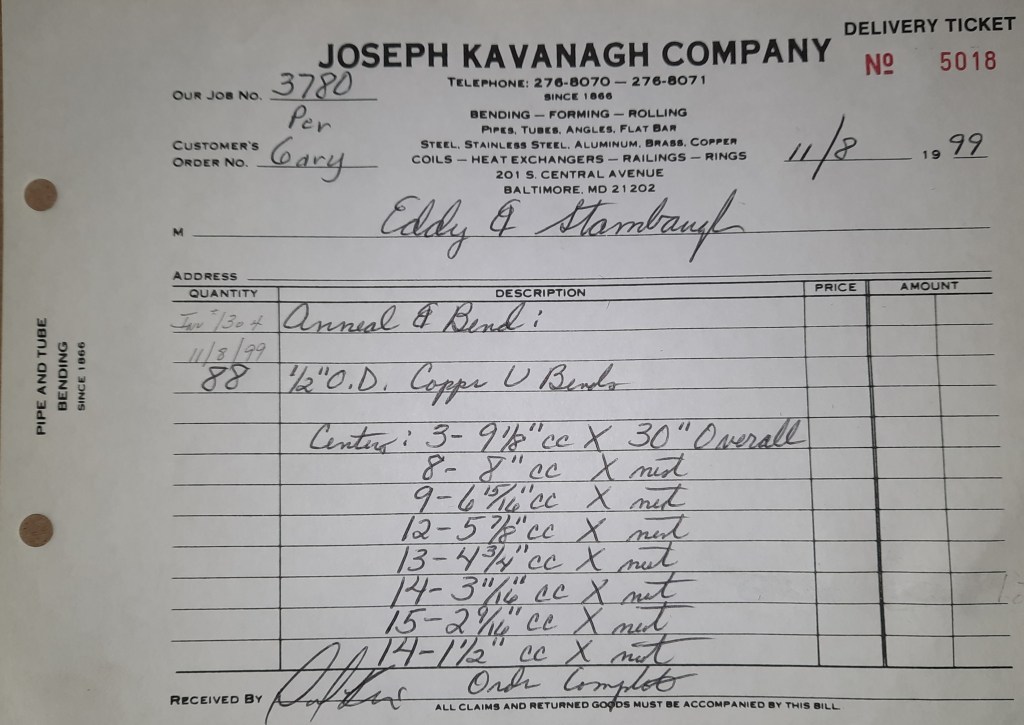 DELIVERY TICKET
JOSEPH KAVANAGH COMPANY
Nº 5018
TELEPHONE: 276-8070 — 276-8071
SINCE 1866
OUR JOB NO. 3780
BENDING — FORMING — ROLLING
PIPES, TUBES, ANGLES, FLAT BAR
Per
CUSTOMER'S
ORDER NO. Gary
STEEL, STAINLESS STEEL, ALUMINUM, BRASS, COPPER
COILS — HEAT EXCHANGERS — RAILINGS — RINGS
201 S. CENTRAL AVENUE
BALTIMORE, MD 21202
11/8 19 99
M Eddy & Stambaugh
ADDRESS
QUANTITY DESCRIPTION PRICE AMOUNT
Anneal & Bend:
11/8/99
88 1/2" O.D. Copper U Bends
Centers: 3- 9 1/8" cc X 30" Overall
8- 8" cc X nest
9- 6 15/16" cc X nest
12- 5 7/8" cc X nest
13- 4 3/4" cc X nest
14- 3 11/16" cc X nest
15- 2 9/16" cc X nest
14- 1 1/2" cc X nest
Order Complete
RECEIVED BY
ALL CLAIMS AND RETURNED GOODS MUST BE ACCOMPANIED BY THIS BILL.
PIPE AND TUBE
BENDING
SINCE 1866